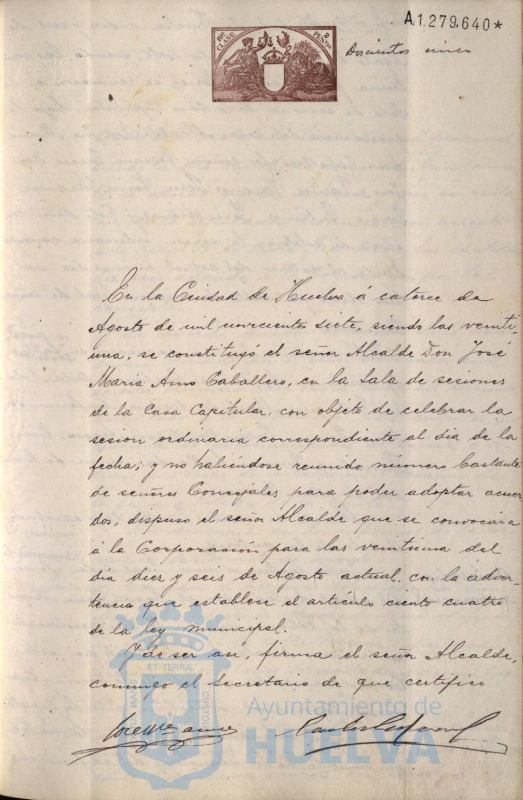 A.1.279.640*
10ª CLASE
2 PESETAS
Doscientos cinco
En la Ciudad de Huelva á catorce de
Agosto de mil novecientos siete, siendo las veinti-
una, se constituyó el señor Alcalde Don José
Maria Amo Caballero, en la Sala de sesiones
de la Casa Capitular, con objeto de celebrar la
sesion ordinaria correspondiente al dia de la
fecha; y no habiéndose reunido número bastante
de señores Concejales para poder adoptar acuer-
dos, dispuso el señor Alcalde que se convocára
á la Corporación para las veintiuna del
día diez y seis de Agosto actual, con la adver-
tencia que establece el artículo ciento cuatro
de la ley municipal.
Y de ser así, firma el señor Alcalde,
conmigo el Secretario de que certifico
José Mª Amo
ET TERRÆ
Ayuntamiento de
HUELVA